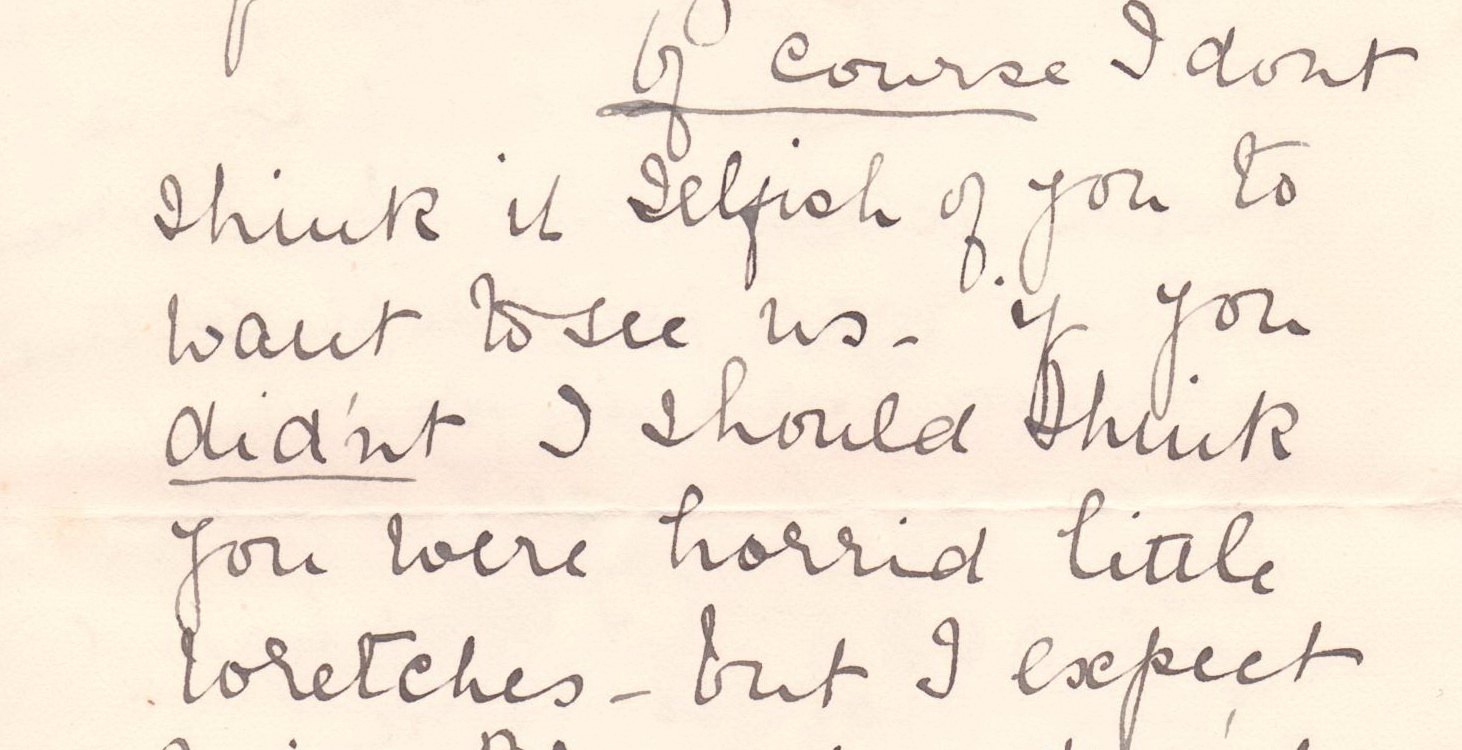 of course I dont
think it selfish of you to
want to see us - if you
did'nt I should think
you were horrid little
wretches - but I expect